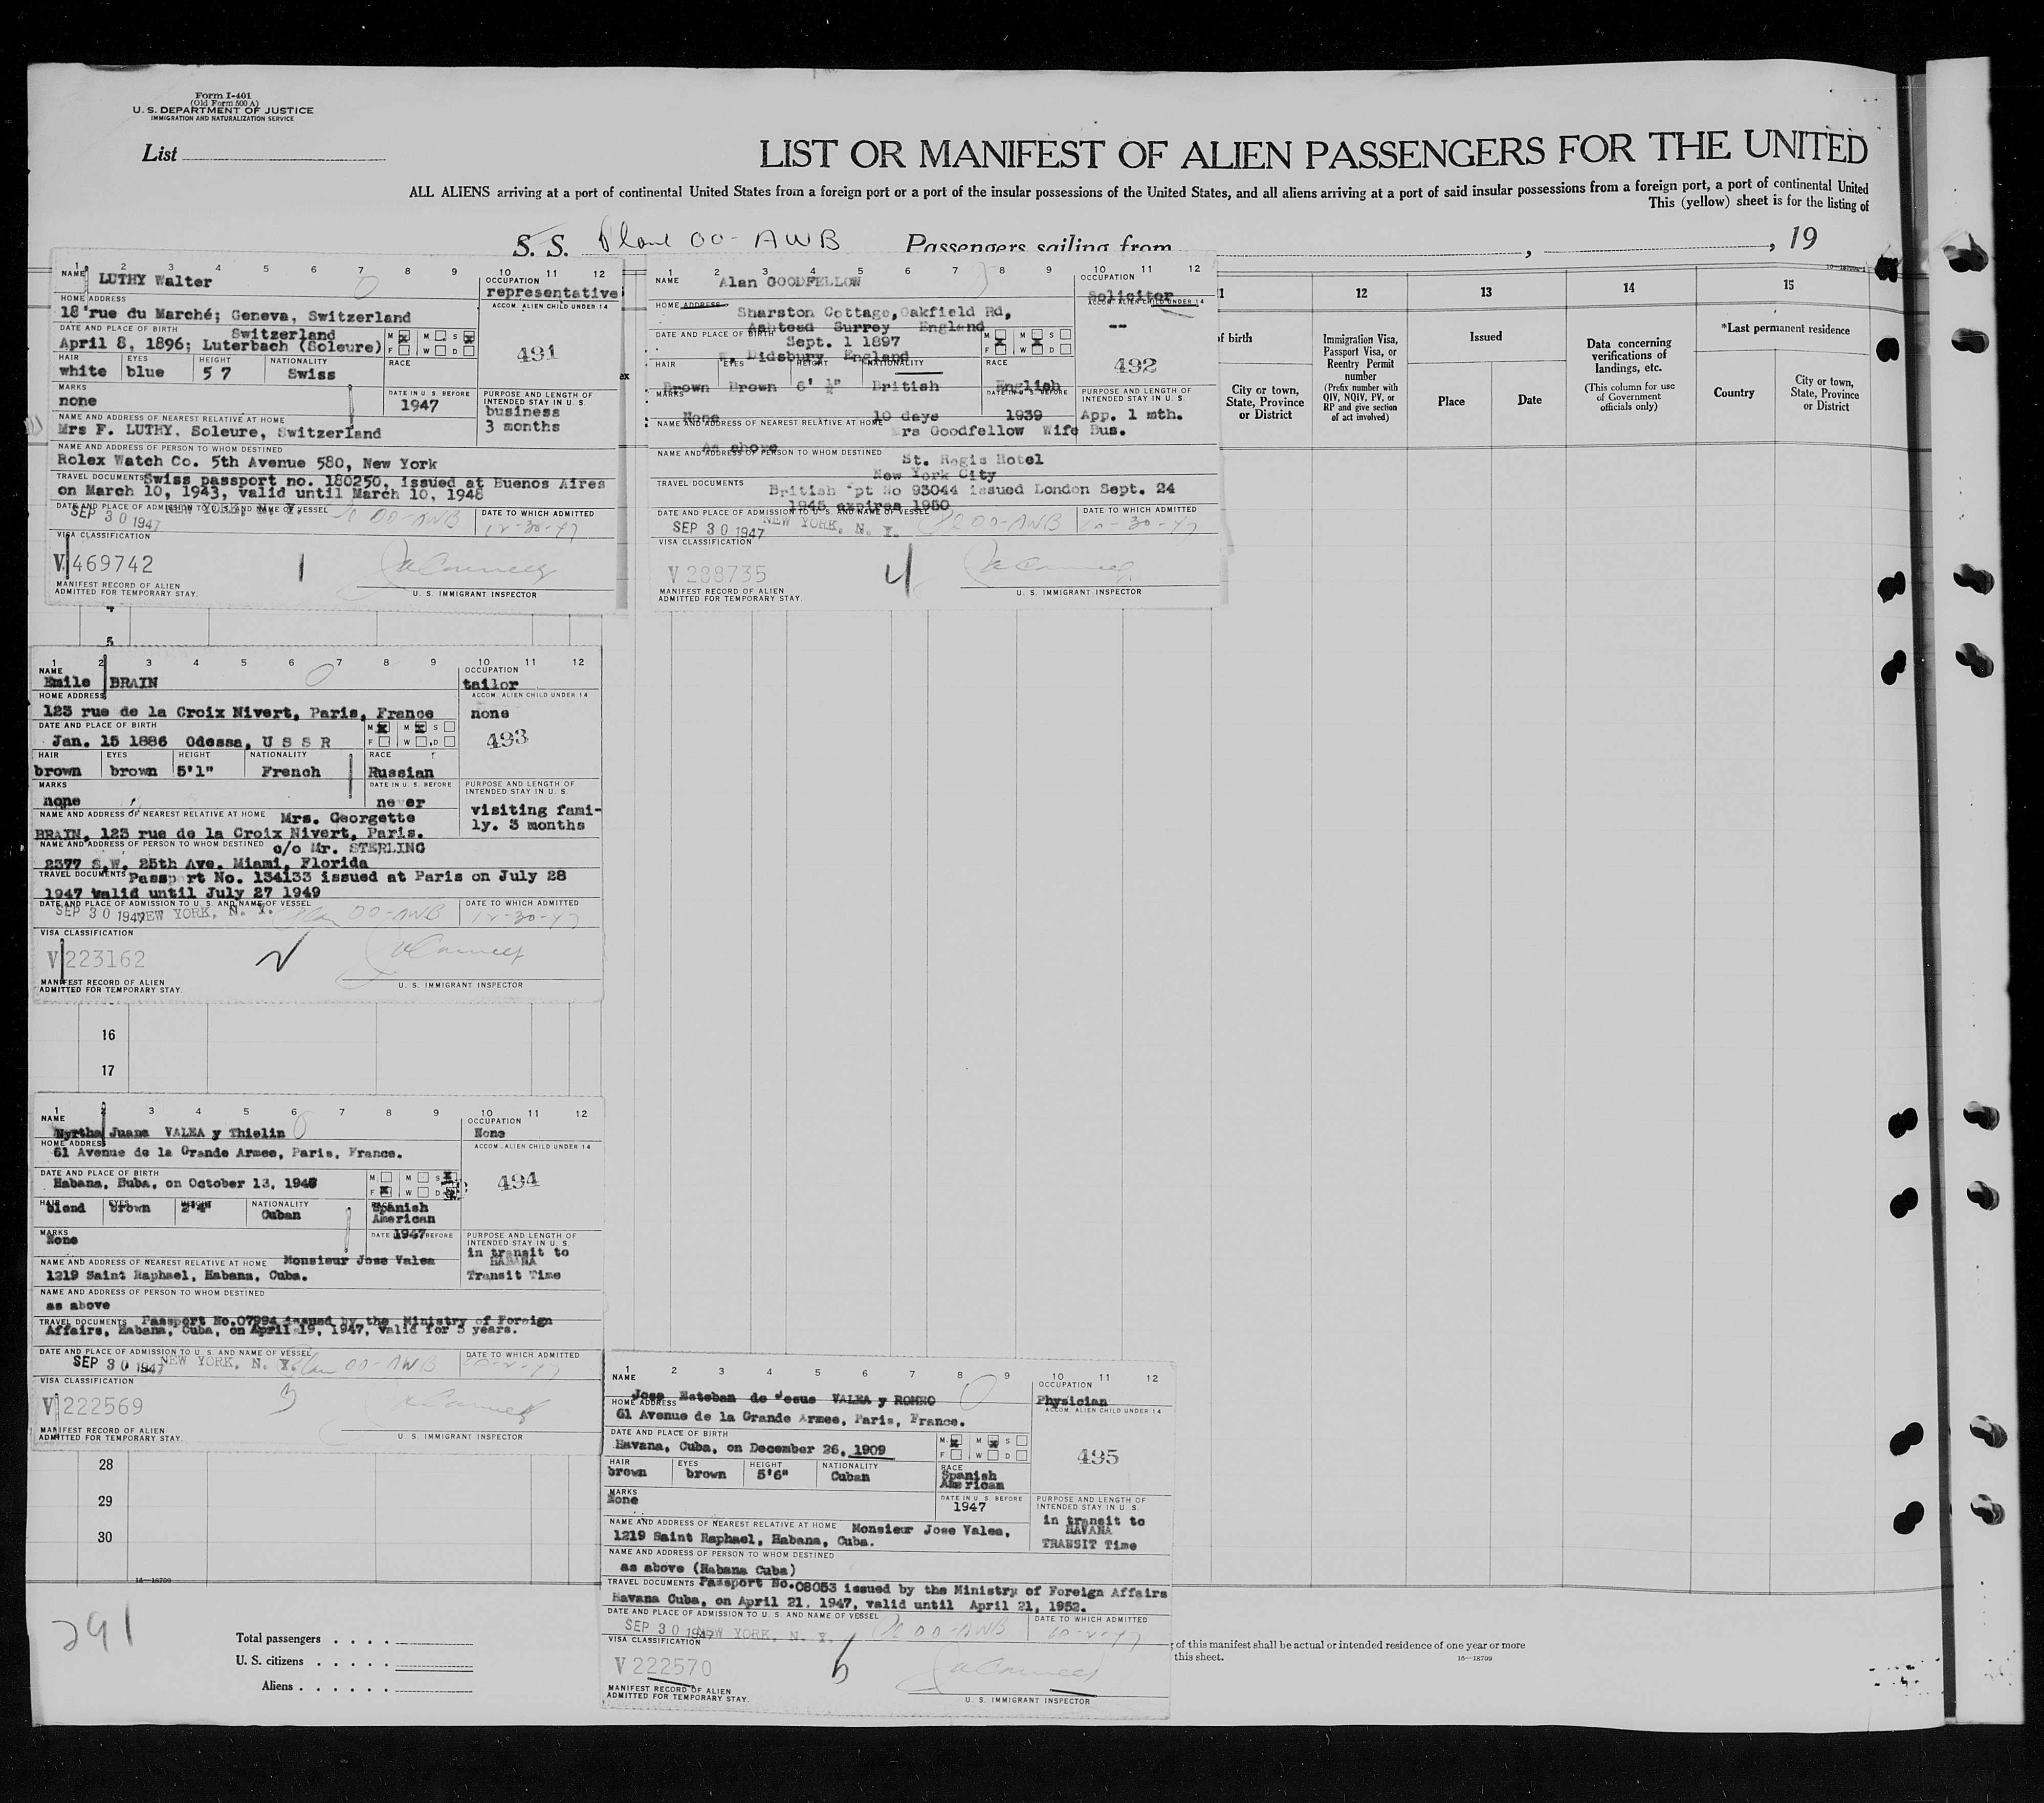 Form I-401
(Old Form 500 A)
U. S. DEPARTMENT OF JUSTICE
IMMIGRATION AND NATURALIZATION SERVICE
List
LIST OR MANIFEST OF ALIEN PASSENGERS FOR THE UNITED
ALL ALIENS arriving at a port of continental United States from a foreign port or a port of the insular possessions of the United States, and all aliens arriving at a port of said insular possessions from a foreign port, a port of continental United
This (yellow) sheet is for the listing of
S. S. Plane OO-AWB Passengers sailing from , , 19
1 2 3 4 5 6 7 8 9 10 11 12
NAME LUTHY Walter
OCCUPATION
representative
HOME ADDRESS
ACCOM. ALIEN CHILD UNDER 14
18 rue du Marché; Geneva, Switzerland
DATE AND PLACE OF BIRTH Switzerland
April 8, 1896; Luterbach (Soleure)
M M S
F W D
491
HAIR EYES HEIGHT NATIONALITY RACE
white blue 5 7 Swiss
MARKS
none
DATE IN U. S. BEFORE
1947
PURPOSE AND LENGTH OF
INTENDED STAY IN U. S.
business
3 months
NAME AND ADDRESS OF NEAREST RELATIVE AT HOME
Mrs F. LUTHY, Soleure, Switzerland
NAME AND ADDRESS OF PERSON TO WHOM DESTINED
Rolex Watch Co. 5th Avenue 580, New York
TRAVEL DOCUMENTS Swiss passport no. 180250, issued at Buenos Aires
on March 10, 1943, valid until March 10, 1948
DATE AND PLACE OF ADMISSION TO U. S. AND NAME OF VESSEL
DATE TO WHICH ADMITTED
SEP 30 1947 NEW YORK, N. Y. OO-AWB 12-30-47
VISA CLASSIFICATION
V 469742 1
MANIFEST RECORD OF ALIEN
ADMITTED FOR TEMPORARY STAY.
U. S. IMMIGRANT INSPECTOR
1 2 3 4 5 6 7 8 9 10 11 12
NAME Alan GOODFELLOW
OCCUPATION
Solicitor
HOME ADDRESS
ACCOM. ALIEN CHILD UNDER 14
Sharston Cottage, Oakfield Rd,
--
Ashtead Surrey England
DATE AND PLACE OF BIRTH
Sept. 1 1897
W. Didsbury England
M M S
F W D
492
HAIR EYES HEIGHT NATIONALITY RACE
Brown Brown 6' ½" British English
MARKS
None 10 days
DATE IN U. S. BEFORE
1939
PURPOSE AND LENGTH OF
INTENDED STAY IN U. S.
App. 1 mth.
Bus.
NAME AND ADDRESS OF NEAREST RELATIVE AT HOME
Mrs Goodfellow Wife
As above
NAME AND ADDRESS OF PERSON TO WHOM DESTINED
St. Regis Hotel
New York City
TRAVEL DOCUMENTS
British Ppt No 93044 issued London Sept. 24
1945 expires 1950
DATE AND PLACE OF ADMISSION TO U. S. AND NAME OF VESSEL
DATE TO WHICH ADMITTED
SEP 30 1947 NEW YORK, N. Y. Pl OO-AWB 10-30-47
VISA CLASSIFICATION
V 288735 4
MANIFEST RECORD OF ALIEN
ADMITTED FOR TEMPORARY STAY.
U. S. IMMIGRANT INSPECTOR
11 12 13 14 15
of birth
City or town,
State, Province
or District
Immigration Visa,
Passport Visa, or
Reentry Permit
number
(Prefix number with
QIV, NQIV, PV, or
RP and give section
of act involved)
Issued
Place Date
Data concerning
verifications of
landings, etc.
(This column for use
of Government
officials only)
*Last permanent residence
Country
City or town,
State, Province
or District
4
5
1 2 3 4 5 6 7 8 9 10 11 12
NAME
Emile BRAIN
OCCUPATION
tailor
HOME ADDRESS
ACCOM. ALIEN CHILD UNDER 14
123 rue de la Croix Nivert, Paris, France
none
DATE AND PLACE OF BIRTH
Jan. 15 1886 Odessa, U S S R
M M S
F W D
493
HAIR EYES HEIGHT NATIONALITY RACE
brown brown 5'1" French Russian
MARKS
none
DATE IN U. S. BEFORE
never
PURPOSE AND LENGTH OF
INTENDED STAY IN U. S.
visiting fami-
ly. 3 months
NAME AND ADDRESS OF NEAREST RELATIVE AT HOME Mrs. Georgette
BRAIN, 123 rue de la Croix Nivert, Paris.
NAME AND ADDRESS OF PERSON TO WHOM DESTINED c/o Mr. STERLING
2377 S.W. 25th Ave. Miami, Florida
TRAVEL DOCUMENTS Passport No. 134133 issued at Paris on July 28
1947 valid until July 27 1949
DATE AND PLACE OF ADMISSION TO U. S. AND NAME OF VESSEL
DATE TO WHICH ADMITTED
SEP 30 1947 NEW YORK, N. Y. OO-AWB 12-30-47
VISA CLASSIFICATION
V 223162 2
MANIFEST RECORD OF ALIEN
ADMITTED FOR TEMPORARY STAY.
U. S. IMMIGRANT INSPECTOR
16
17
1 2 3 4 5 6 7 8 9 10 11 12
NAME
Myrtha Juana VALEA y Thielin
OCCUPATION
None
HOME ADDRESS
ACCOM. ALIEN CHILD UNDER 14
61 Avenue de la Grande Armee, Paris, France.
DATE AND PLACE OF BIRTH
Habana, Buba, on October 13, 1945
M M S
F W D
494
HAIR EYES HEIGHT NATIONALITY RACE
blond brown 2'4" Cuban Spanish
American
MARKS
None
DATE 1947 BEFORE
PURPOSE AND LENGTH OF
INTENDED STAY IN U. S.
in transit to
HABANA
Transit Time
NAME AND ADDRESS OF NEAREST RELATIVE AT HOME Monsieur Jose Valea
1219 Saint Raphael, Habana, Cuba.
NAME AND ADDRESS OF PERSON TO WHOM DESTINED
as above
TRAVEL DOCUMENTS Passport No.07994 issued by the Ministry of Foreign
Affairs, Habana, Cuba, on April 19, 1947, valid for 5 years.
DATE AND PLACE OF ADMISSION TO U. S. AND NAME OF VESSEL
DATE TO WHICH ADMITTED
SEP 30 1947 NEW YORK, N. Y. OO-AWB 10-2-47
VISA CLASSIFICATION
V 222569 3
MANIFEST RECORD OF ALIEN
ADMITTED FOR TEMPORARY STAY.
U. S. IMMIGRANT INSPECTOR
28
29
30
16-18709
1 2 3 4 5 6 7 8 9 10 11 12
NAME
Jose Esteban de Jesus VALEA y ROMNO
OCCUPATION
Physician
HOME ADDRESS
ACCOM. ALIEN CHILD UNDER 14
61 Avenue de la Grande Armee, Paris, France.
DATE AND PLACE OF BIRTH
Havana, Cuba, on December 26, 1909
M M S
F W D
495
HAIR EYES HEIGHT NATIONALITY RACE
brown brown 5'6" Cuban Spanish
American
MARKS
None
DATE IN U. S. BEFORE
1947
PURPOSE AND LENGTH OF
INTENDED STAY IN U. S.
in transit to
HAVANA
TRANSIT Time
NAME AND ADDRESS OF NEAREST RELATIVE AT HOME Monsieur Jose Valea,
1219 Saint Raphael, Habana, Cuba.
NAME AND ADDRESS OF PERSON TO WHOM DESTINED
as above (Habana Cuba)
TRAVEL DOCUMENTS Passport No.08053 issued by the Ministry of Foreign Affairs
Havana Cuba, on April 21, 1947, valid until April 21, 1952.
DATE AND PLACE OF ADMISSION TO U. S. AND NAME OF VESSEL
DATE TO WHICH ADMITTED
SEP 30 1947 NEW YORK, N. Y. Pl OO-AWB 10-2-47
VISA CLASSIFICATION
V 222570
MANIFEST RECORD OF ALIEN
ADMITTED FOR TEMPORARY STAY.
U. S. IMMIGRANT INSPECTOR
291
Total passengers . . . .
U. S. citizens . . . . .
Aliens . . . . . .
of this manifest shall be actual or intended residence of one year or more
this sheet.
16-18709